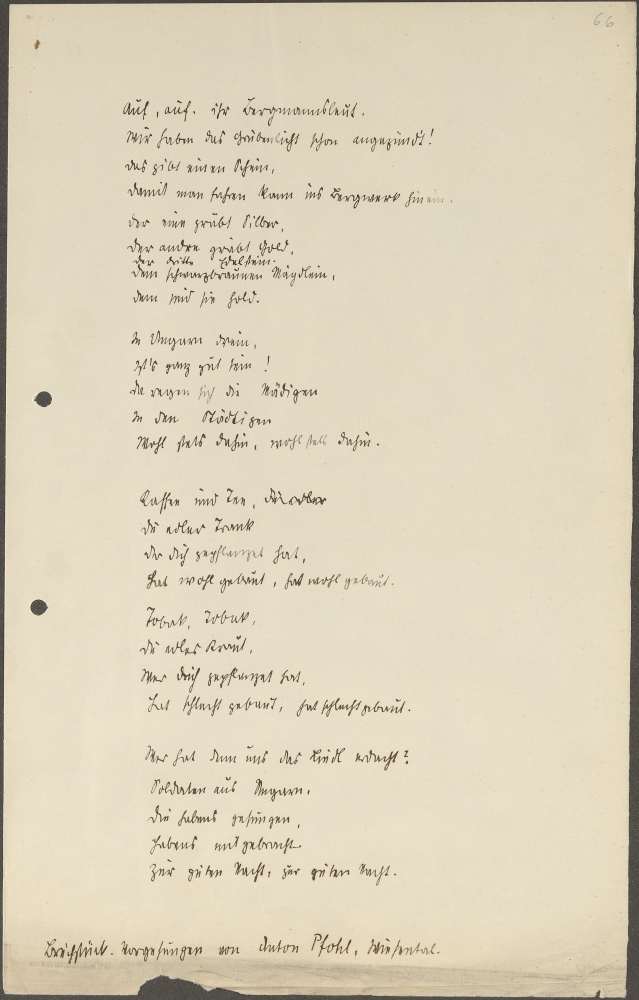 66
Auf, auf. ihr Bergmannsleut.
Wir haben das Grubenlicht schon angezündt!
das gibt einen Schein,
damit man fahren kann ins Bergwerk hinein.
der eine gräbt Silber,
der andre gräbt Gold,
der dritte Edelstein.
dem schwarzbraunen Mägdlein,
dem sind sie hold.
In Ungarn drein,
Ist's ganz gut sein!
da regen sich die Mädigen
In den Städtigen
Wohl stets dahin, wohl stets dahin.
Kaffee und Tee,
du edler Trank
der dich gepflanzet hat,
hat wohl gebaut, hat wohl gebaut.
Tobak, Tobak,
du edles Kraut,
Wer dich gepflanzet hat,
Hat schlecht gebaut, hat schlecht gebaut.
Wer hat denn uns das Liedl erdacht?
Soldaten aus Ungarn.
die habens gesungen,
habens mitgebracht
Zur guten Nacht, zur guten Nacht.
Bruchstück. Vorgesungen von Anton Pfohl, Wiesental.